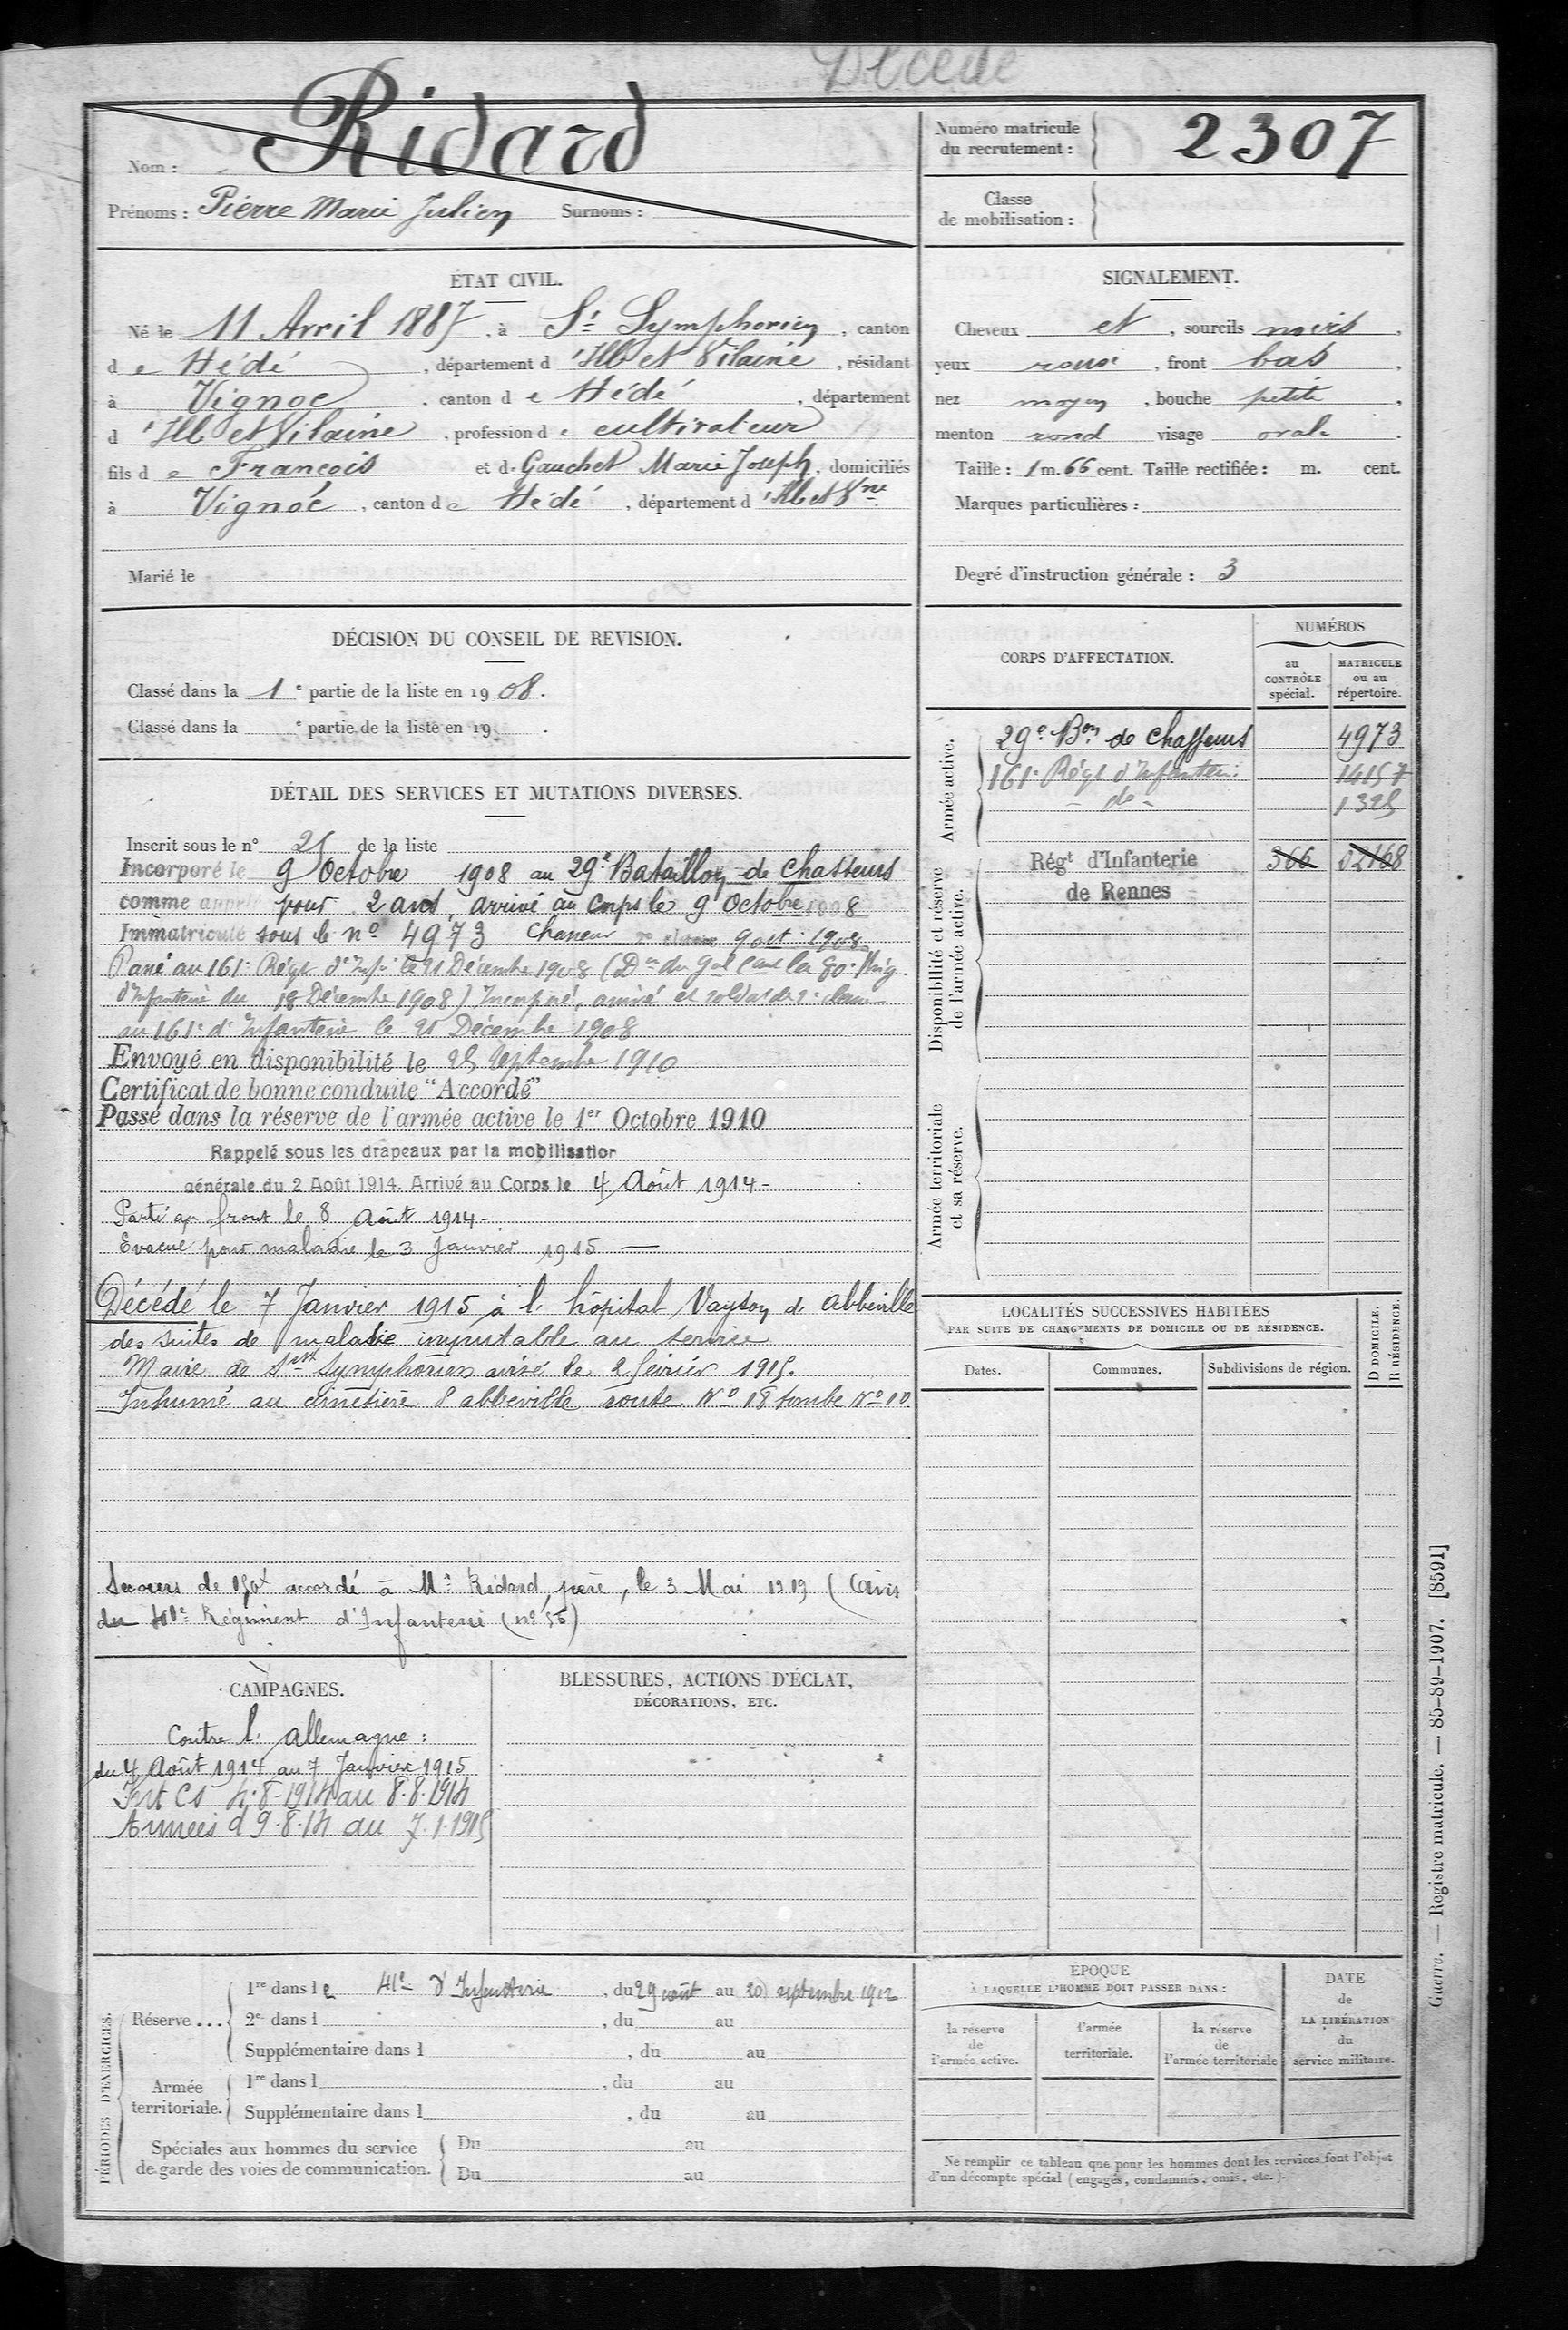 Décédé
Nom : Ridard
Prénoms : Pierre Marie Julien Surnoms :
Numéro matricule du recrutement : 2307
Classe de mobilisation :
ÉTAT CIVIL.
Né le 11 Avril 1887, à St Symphorien, canton
de Hédé, département d'Ille et Vilaine, résidant
à Vignoc, canton de Hédé, département
d'Ille et Vilaine, profession de cultivateur
fils de François et de Gauchet Marie Joseph, domiciliés
à Vignoc, canton de Hédé, département d'Ille et Vne
Marié le
SIGNALEMENT.
Cheveux et, sourcils noirs,
yeux roux, front bas,
nez moyen, bouche petite,
menton rond visage ovale.
Taille : 1 m. 66 cent. Taille rectifiée : m. cent.
Marques particulières :
Degré d'instruction générale : 3
DÉCISION DU CONSEIL DE REVISION.
Classé dans la 1e partie de la liste en 1908.
Classé dans la e partie de la liste en 19 .
DÉTAIL DES SERVICES ET MUTATIONS DIVERSES.
Inscrit sous le n° 25 de la liste
Incorporé le 9 Octobre 1908 au 29e Bataillon de Chasseurs
comme appelé pour 2 ans, arrivé au corps le 9 Octobre 1908
Immatriculé sous le n° 4973 Chasseur 2e classe 9 oct. 1908
Passé au 161e Régt d'Infie le 21 Décembre 1908 (Don du Gal Cant la 80e Brig.
d'Infanterie du 18 Décembre 1908) Incorporé, arrivé et soldat de 2e classe
au 161e d'Infanterie le 21 Décembre 1908
Envoyé en disponibilité le 25 Septembre 1910
Certificat de bonne conduite "Accordé"
Passé dans la réserve de l'armée active le 1er Octobre 1910
Rappelé sous les drapeaux par la mobilisation
générale du 2 Août 1914. Arrivé au Corps le 4 Août 1914 -
Parti au front le 8 Août 1914 -
Evacué pour maladie le 3 Janvier 1915 —
Décédé le 7 Janvier 1915 à l'hôpital Vayson de Abbeville
des suites de maladie imputable au service
Maire de St Symphorien avisé le 2 février 1915.
Inhumé au cimetière d'abbeville route N° 18 tombe N° 10
Secours de 150f accordé à Mr Ridard, père, le 3 Mai 1919 (avis
du Régiment d'Infanterie (n° 56)
CORPS D'AFFECTATION.
NUMÉROS
au CONTRÔLE spécial.
MATRICULE ou au répertoire.
Armée active.
29e Bon de Chasseurs 4973
161e Régt d'Infanterie 14157
- do - 1325
Disponibilité et réserve de l'armée active.
Régt d'Infanterie 366 02168
de Rennes
Armée territoriale et sa réserve.
LOCALITÉS SUCCESSIVES HABITÉES
PAR SUITE DE CHANGEMENTS DE DOMICILE OU DE RÉSIDENCE.
D DOMICILE.
R RÉSIDENCE.
Dates. Communes. Subdivisions de région.
CAMPAGNES.
Contre l'Allemagne :
du 4 Août 1914 au 7 Janvier 1915
Int Cs 4.8-1914 au 8.8.1914
Armées d 9.8.14 au 7.1.1915
BLESSURES, ACTIONS D'ÉCLAT,
DÉCORATIONS, ETC.
PÉRIODES D'EXERCICES.
Réserve ...
1re dans le 41e d'Infanterie, du 29 août au 20 septembre 1912
2e dans l , du au
Supplémentaire dans l , du au
Armée territoriale.
1re dans l , du au
Supplémentaire dans l , du au
Spéciales aux hommes du service
de garde des voies de communication.
Du au
Du au
ÉPOQUE
À LAQUELLE L'HOMME DOIT PASSER DANS :
la réserve de l'armée active.
l'armée territoriale.
la réserve de l'armée territoriale
DATE de LA LIBÉRATION du service militaire.
Ne remplir ce tableau que pour les hommes dont les services font l'objet
d'un décompte spécial (engagés, condamnés, omis, etc.).
Guerre. — Registre matricule. — 85-89-1907. [8591]